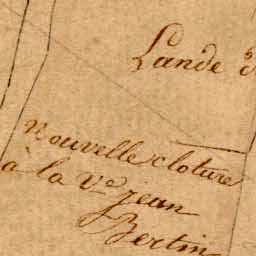 Lande
nouvelle cloture
à la Ve jean
Bertin